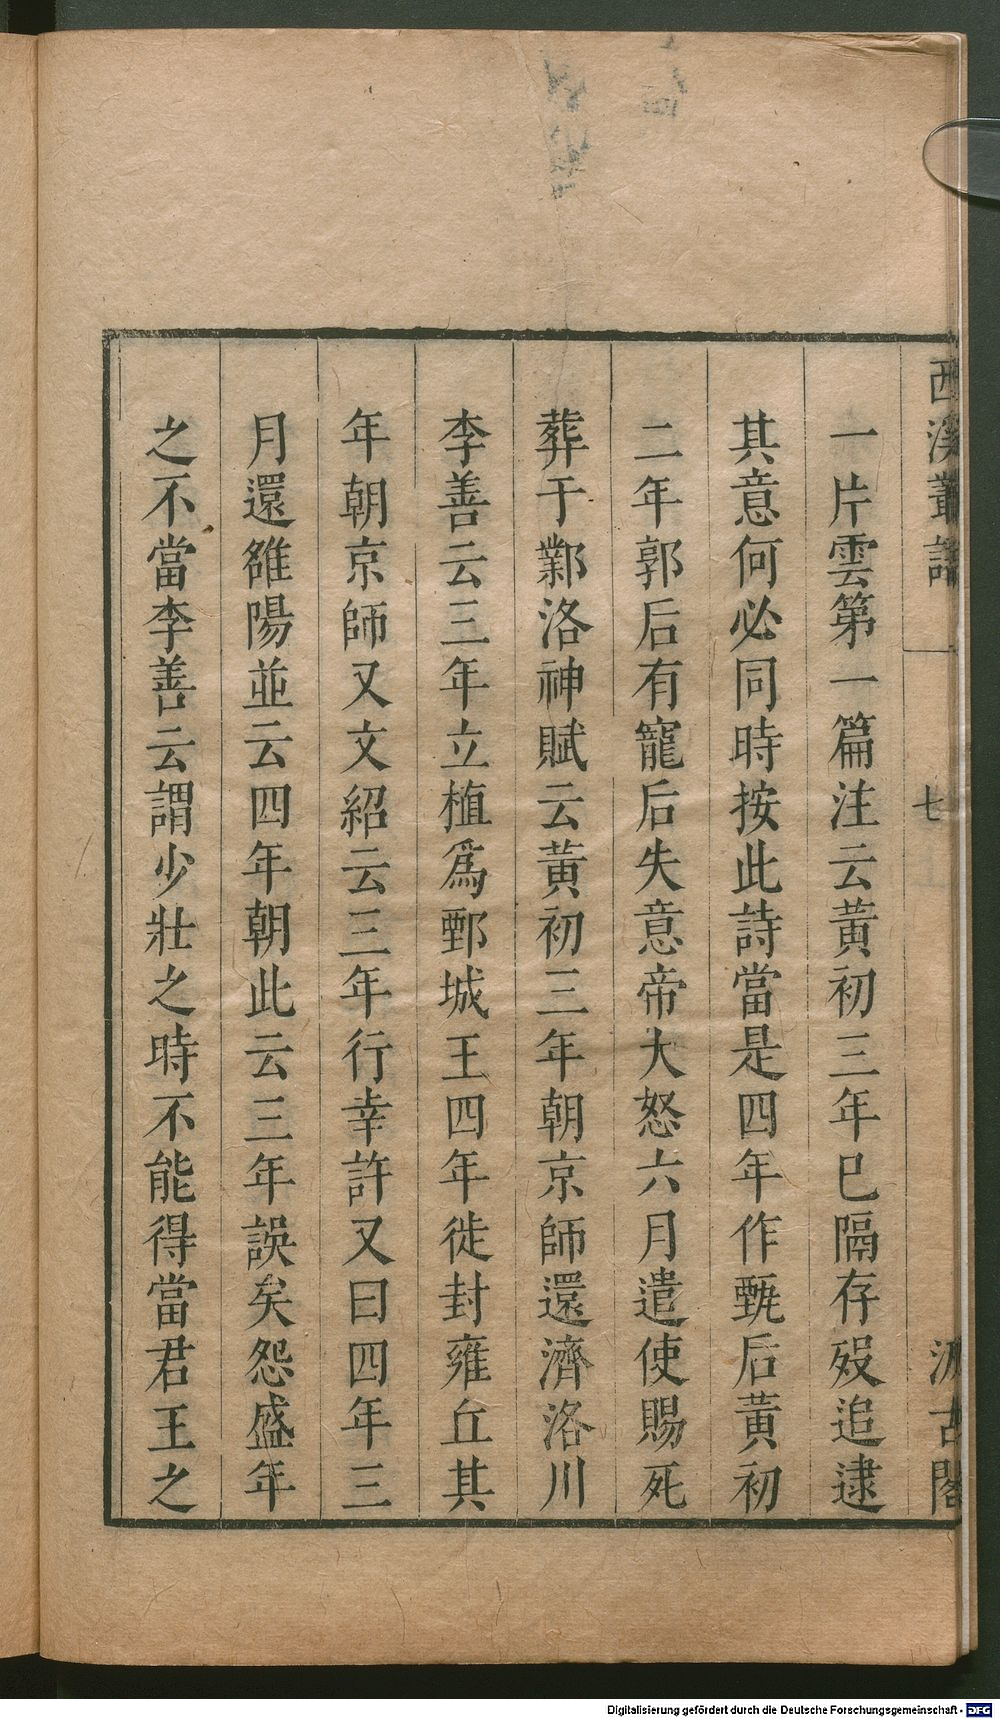 西溪叢語
七
汲古閣
一片雲第一篇注云黃初三年已隔存歿追逮
其意何必同時按此詩當是四年作甄后黃初
二年郭后有寵后失意帝大怒六月遣使賜死
葬于鄴洛神賦云黃初三年朝京師還濟洛川
李善云三年立植爲鄄城王四年徙封雍丘其
年朝京師又文紹云三年行幸許又曰四年三
月還雒陽並云四年朝此云三年誤矣怨盛年
之不當李善云謂少壯之時不能得當君王之
Digitalisierung gefördert durch die Deutsche Forschungsgemeinschaft - DFG